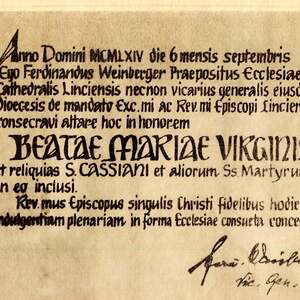 Anno Domini MCMLXIV die 6 mensis septembris
Ego Ferdinandus Weinberger Praepositus Ecclesiae
Cathedralis Linciensis necnon vicarius generalis eiusd
Dioecesis de mandato Exc.mi ac Rev.mi Episcopi Lincien
consecravi altare hoc in honorem
BEATAE MARIAE VIRGINIS
et reliquias S. CASSIANI et aliorum Ss. Martyru
in eo inclusi.
Rev.mus Episcopus singulis Christi fidelibus hodie
indulgentiam plenariam in forma Ecclesiae consueta conce
Vic. Gen.